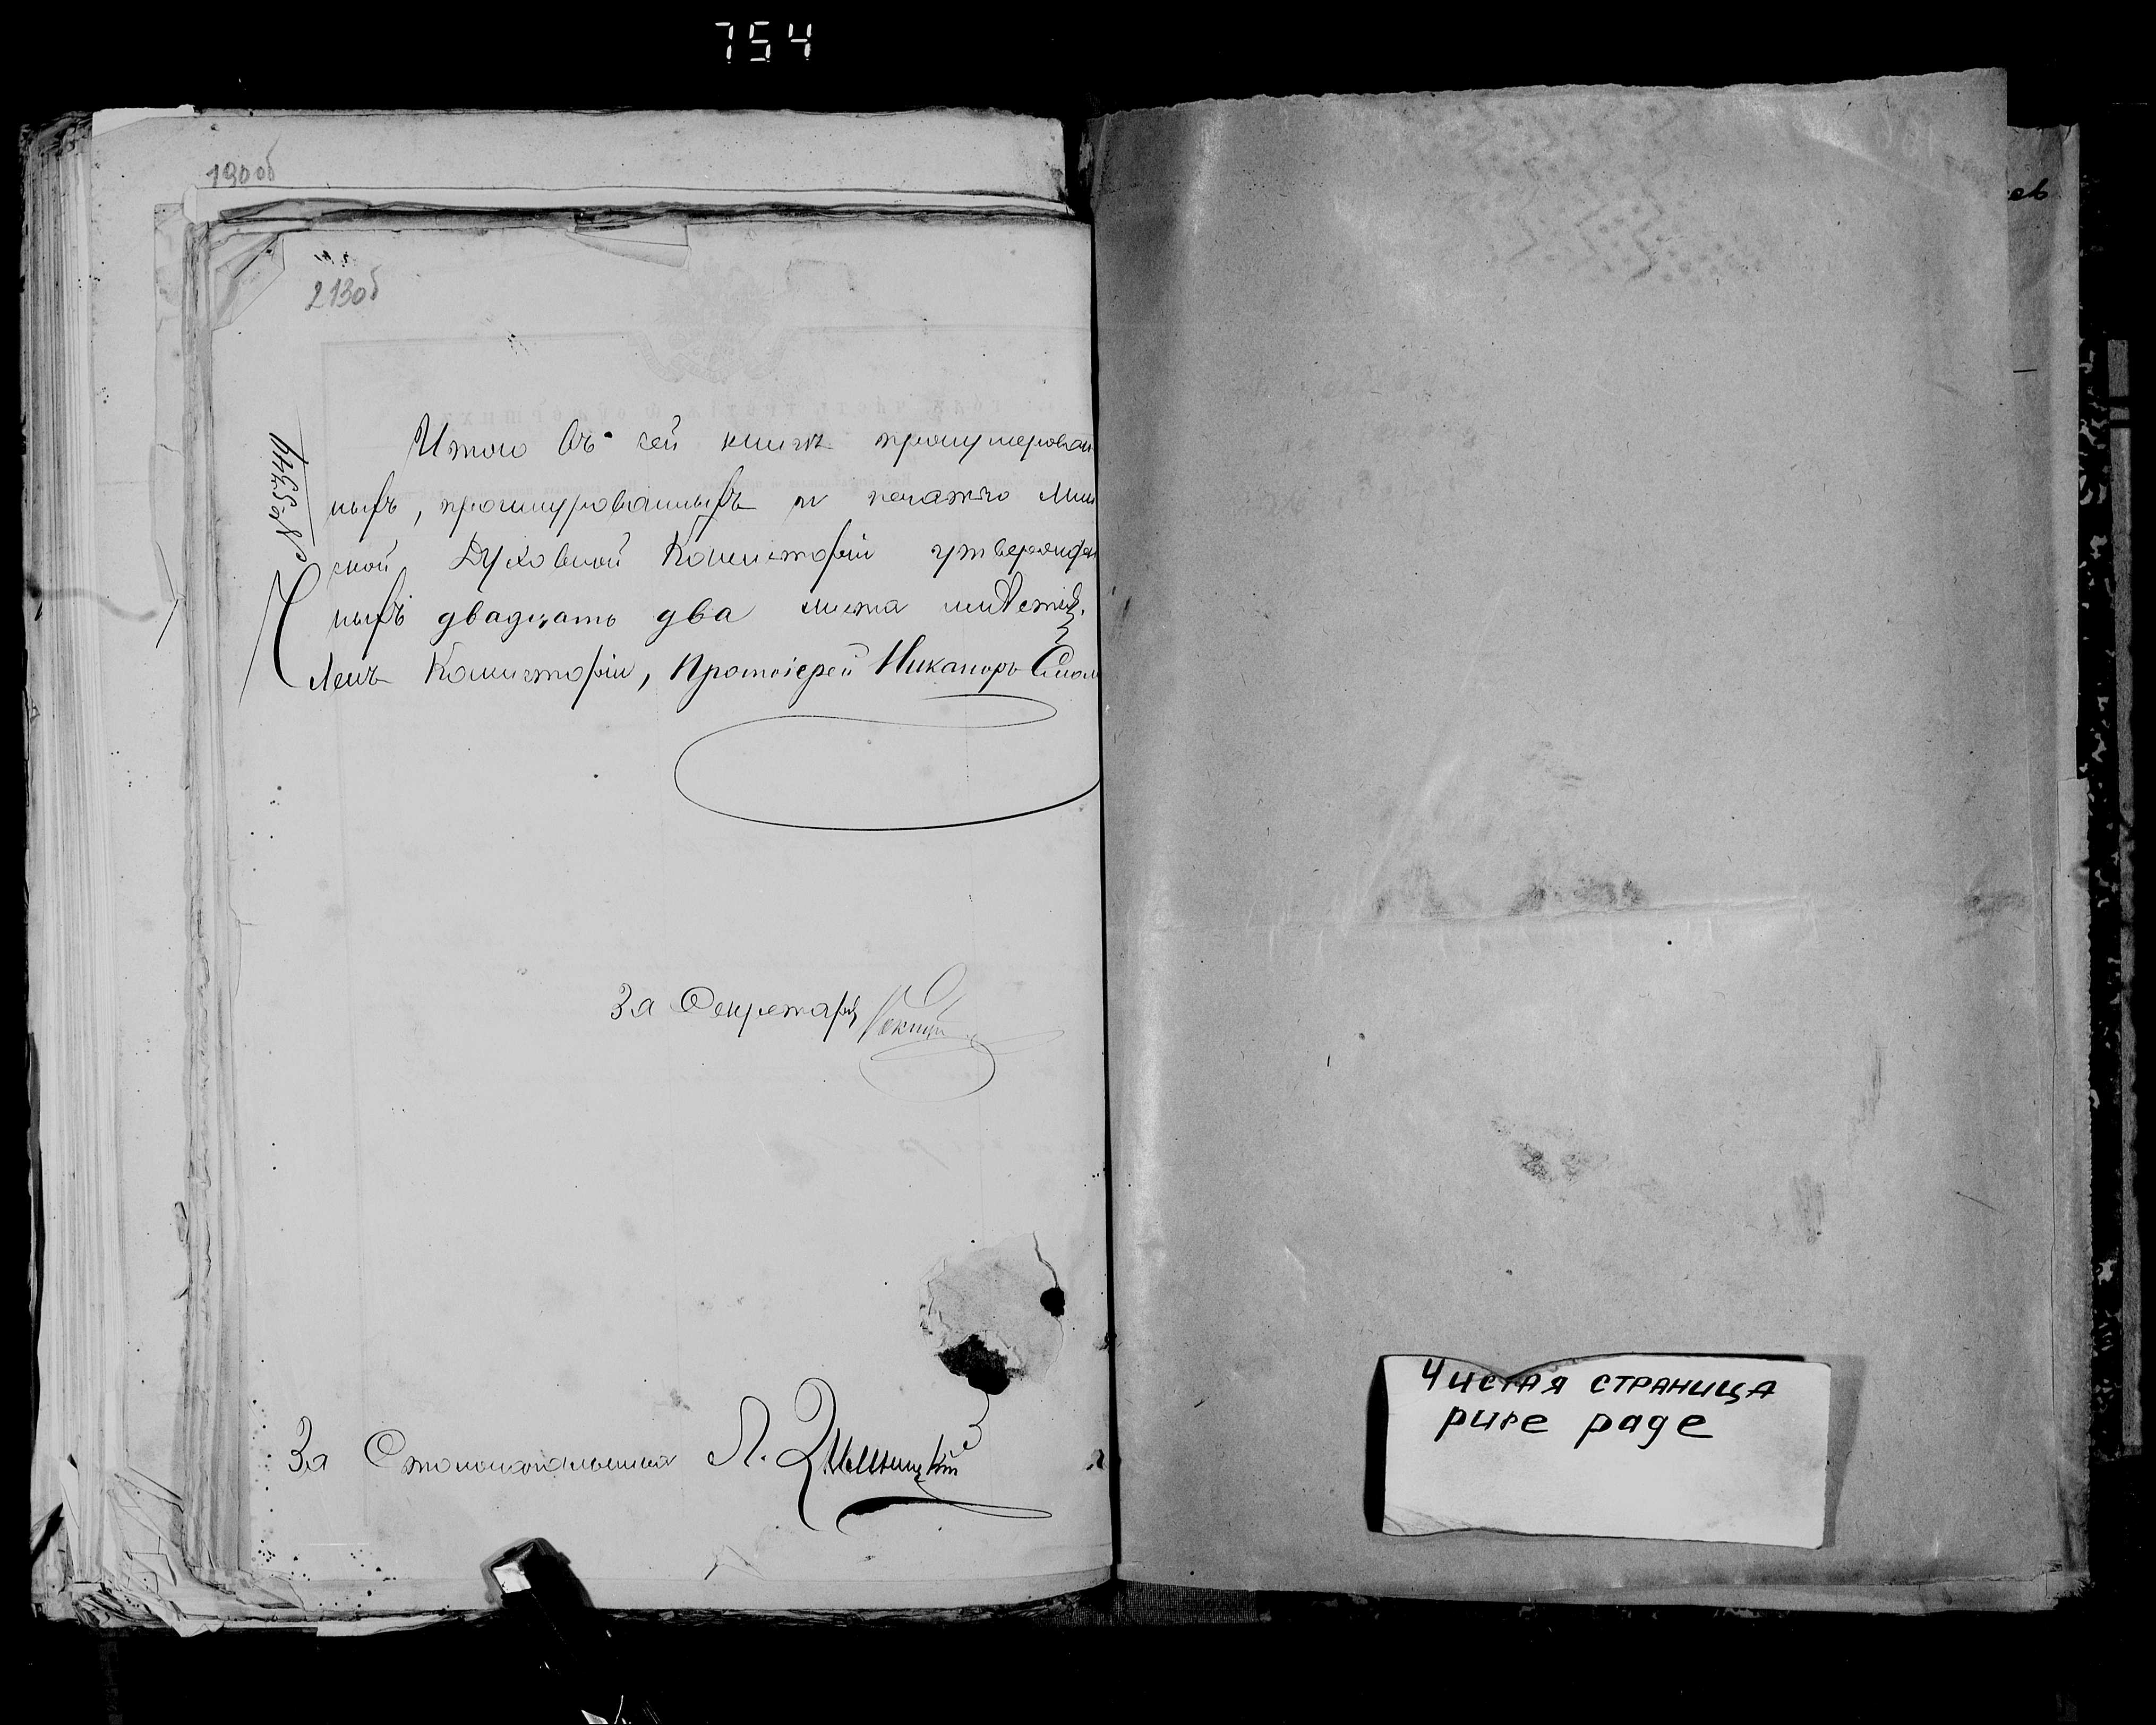 754
190об
213об
№ 5349
Итого въ сей книгѣ пронумерован
ныхъ, прошнурованныхъ и печатью Мин
ской Духовной Консисторіи утвержден
ныхъ двадцать два листа
Членъ Консисторіи, Протоіерей Никаноръ Смол
За Секретаря
За Столоначальника Л.
евъ
Чистая страница
pure page